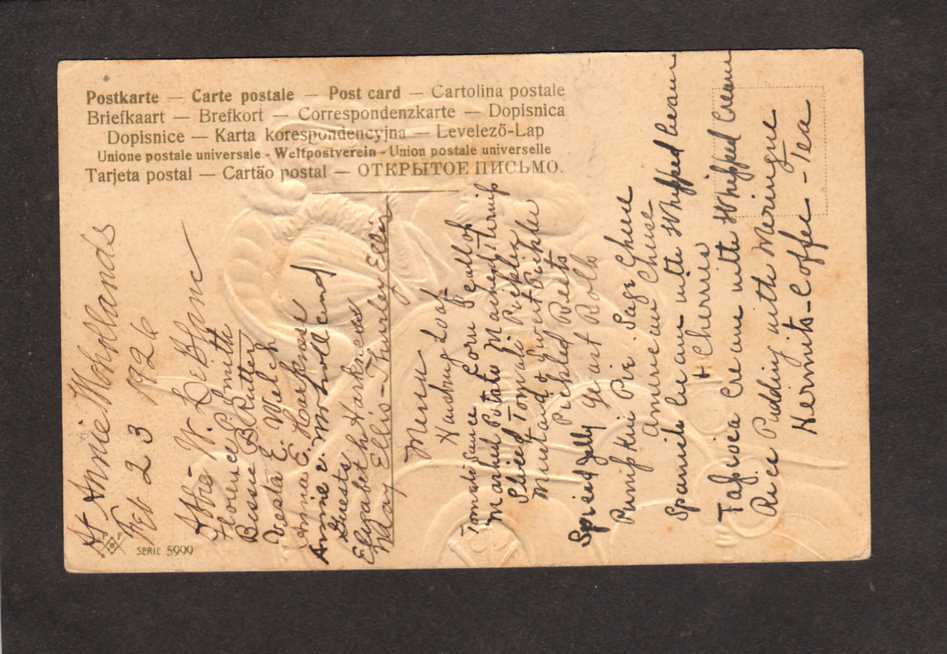 Postkarte — Carte postale — Post card — Cartolina postale
Briefkaart — Brefkort — Correspondenzkarte — Dopisnica
Dopisnice — Karta korespondencyjna — Levelező-Lap
Unione postale universale - Weltpostverein - Union postale universelle
Tarjeta postal — Cartão postal — ОТКРЫТОЕ ПИСЬМО.
At Annie Mehollands
Feb 23 1926
Abbie W. LeBlanc
Florence P. Smith
Bessie B. Rutter
Vesta E. Welch
Annie E. Harkness
Annie C. Moholland
Guests
Elizabeth Harkness
May Ellis - Turley Ellis
Menu
Hamburg Loaf
Tomato Sauce Corn Scallop
Mashed Potato Mashed turnip
Sliced Tomato Pickles
Mustard Sweet Pickle
Pickled Beets
Spiced Jelly Yeast Rolls
Pumpkin Pie Sage Cheese
American Cheese
Spanish Cream with Whipped Cream
+ Cherries
Tapioca Cream with Whipped Cream
Rice Pudding with Meringue
Hermits - Coffee - Tea
SERIE 5999